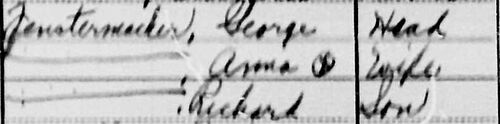 Fenstermacher, George Head
, Anna Wife
, Richard Son